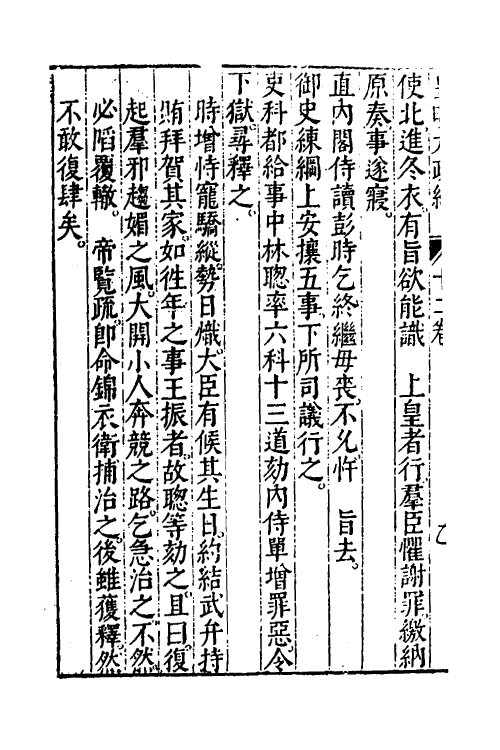 使北進冬衣有旨欲能識　上皇者行羣臣懼謝罪繳納
原奏事遂寢。
直內閣侍讀彭時乞終繼母喪。不允忤　旨去。
御史練綱上安攘五事。下所司議行之。
吏科都給事中林聰率六科十三道劾內侍單增罪惡。令
下獄尋釋之。
時增恃寵驕縱。勢日熾。大臣有候其生日。約結武弁持
賄拜賀其家。如徃年之事王振者。故聰等劾之。且曰。復
起羣邪趨媚之風。大開小人奔競之路。乞急治之。不然
必蹈覆轍。　帝覽疏。卽命錦衣衛捕治之。後雖獲釋。然
不敢復肆矣。